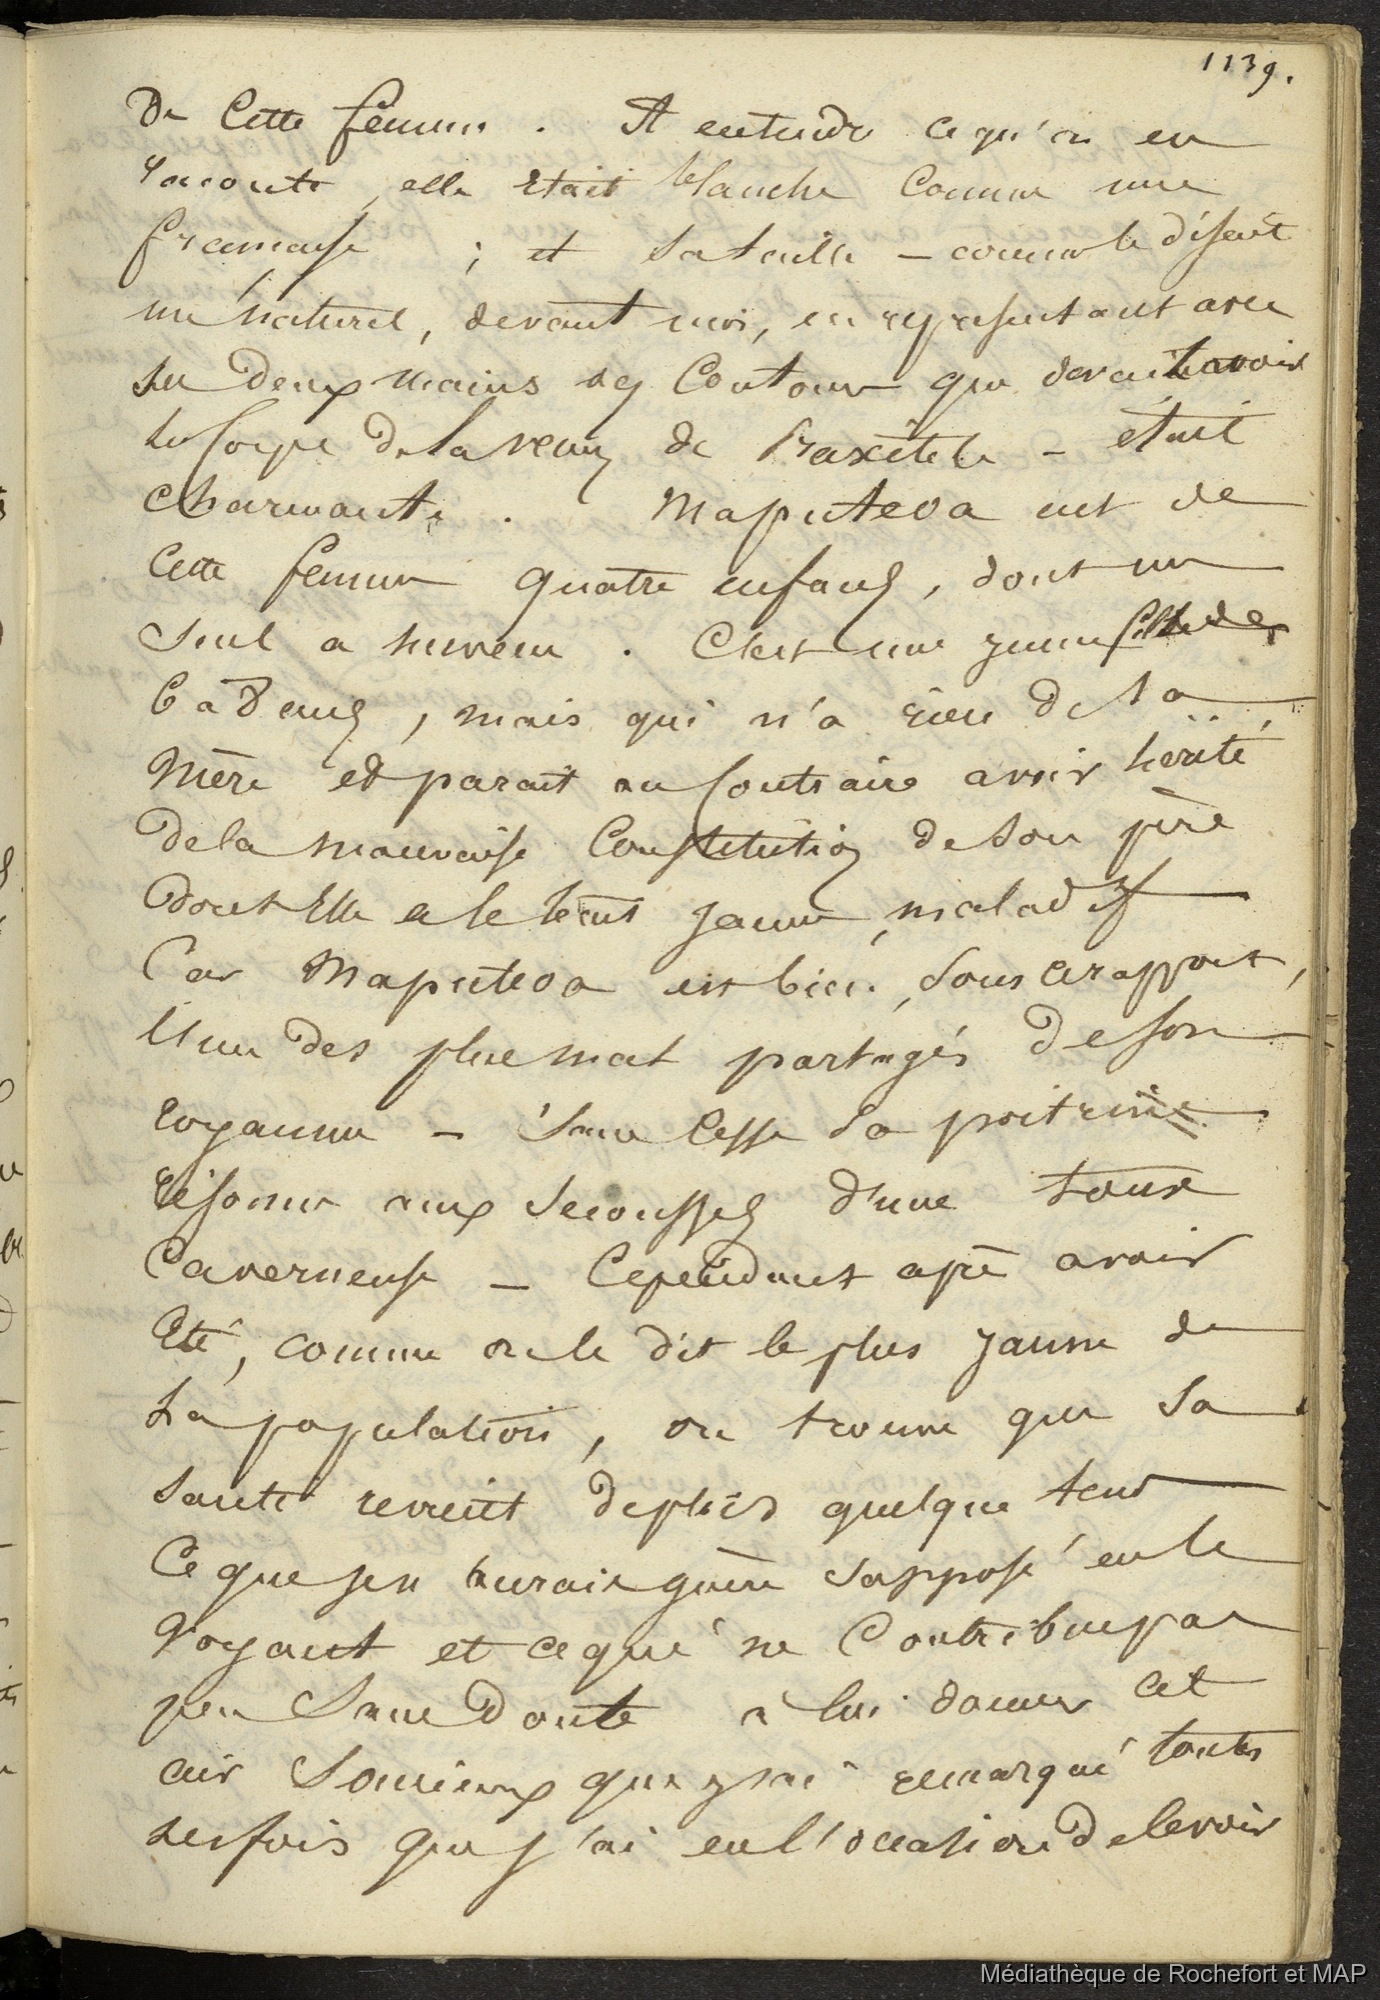 1139.
De Cette femme . A entendre ce qu'on en
raconte, elle était blanche Comme une
francaise ; et sa taille – comme le disait
un naturel, devant moi, en représentant avec
ses deux mains les Contours que devait avoir
le Corps de la venus de Praxitele – était
charmante . Maputeoa eut de
Cette femme quatre enfans, dont un
seul a survecu . C'est une jeune fille de
6 à 8 ans, mais qui n'a rien de sa
mère et parait au Contraire avoir hérité
de la mauvaise Constitution de son père
dont elle a le teint jaune, maladif
Car Maputeoa est bien, sous ce rapport,
l'un des plus mal partagés de son
royaume – Sans cesse sa poitrine
résonne aux secousses d'une toux
Caverneuse – Cependant après avoir
Eté, comme on le dit le plus jaune de
la population, on trouve que sa
santé revient depuis quelque tems
Ce que je n'aurais guère supposé en le
voyant et ce qui ne Contribue pas
peu Sans doute à lui donner cet
air Soucieux que j'ai remarqué toutes
les fois que j'ai eu l'occasion de le voir
Médiathèque de Rochefort et MAP